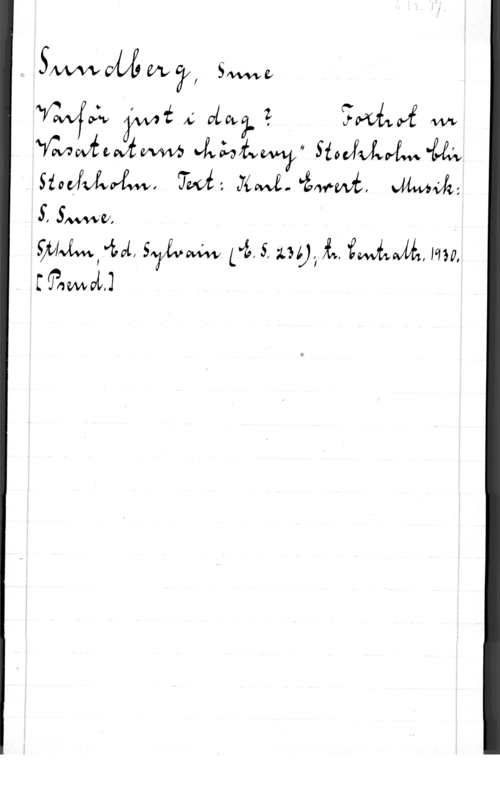 Sundberg, Sune
Varför just i dag? Foxtrot ur
Vasateaterns höstrevy "Stockholm blir
Stockholm. Text: Karl-Ewert. Musik:
S. Sune.
Sthlm, Ed. Sylvain (E. S. 236); tr. Centraltr. 1930.
[Pseud.]